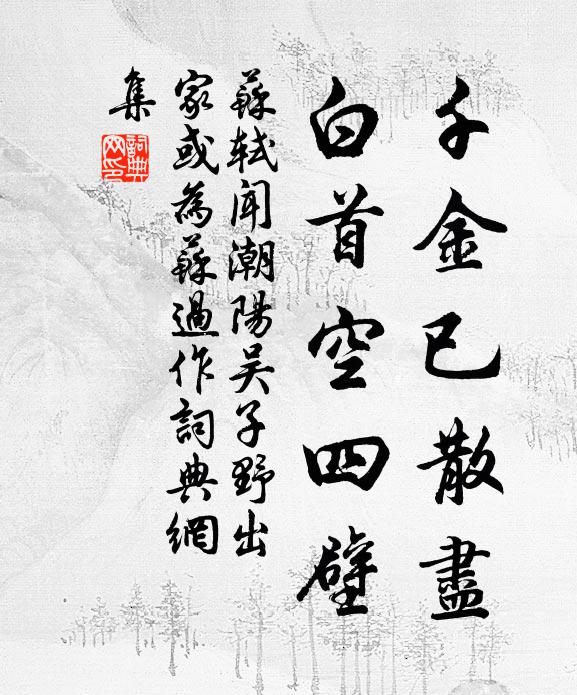 千金已散盡
白首空四壁
蘇軾聞潮陽吴子野出
家或為蘇過作詞典網
集
詞典網